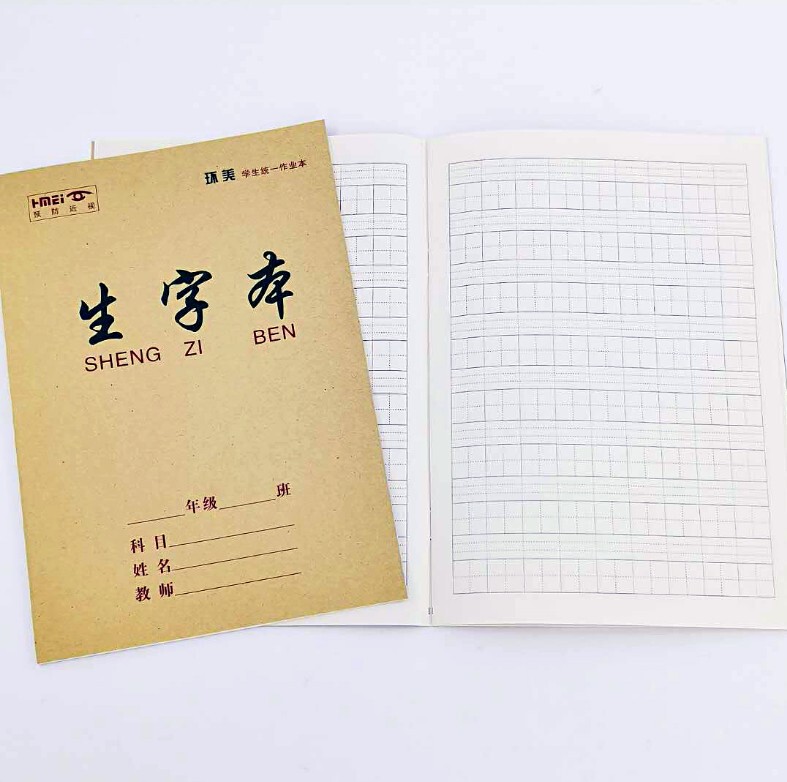 HMEi
预防近视
环美 学生统一作业本
生字本
SHENG ZI BEN
______年级______班
科目______
姓名______
教师______